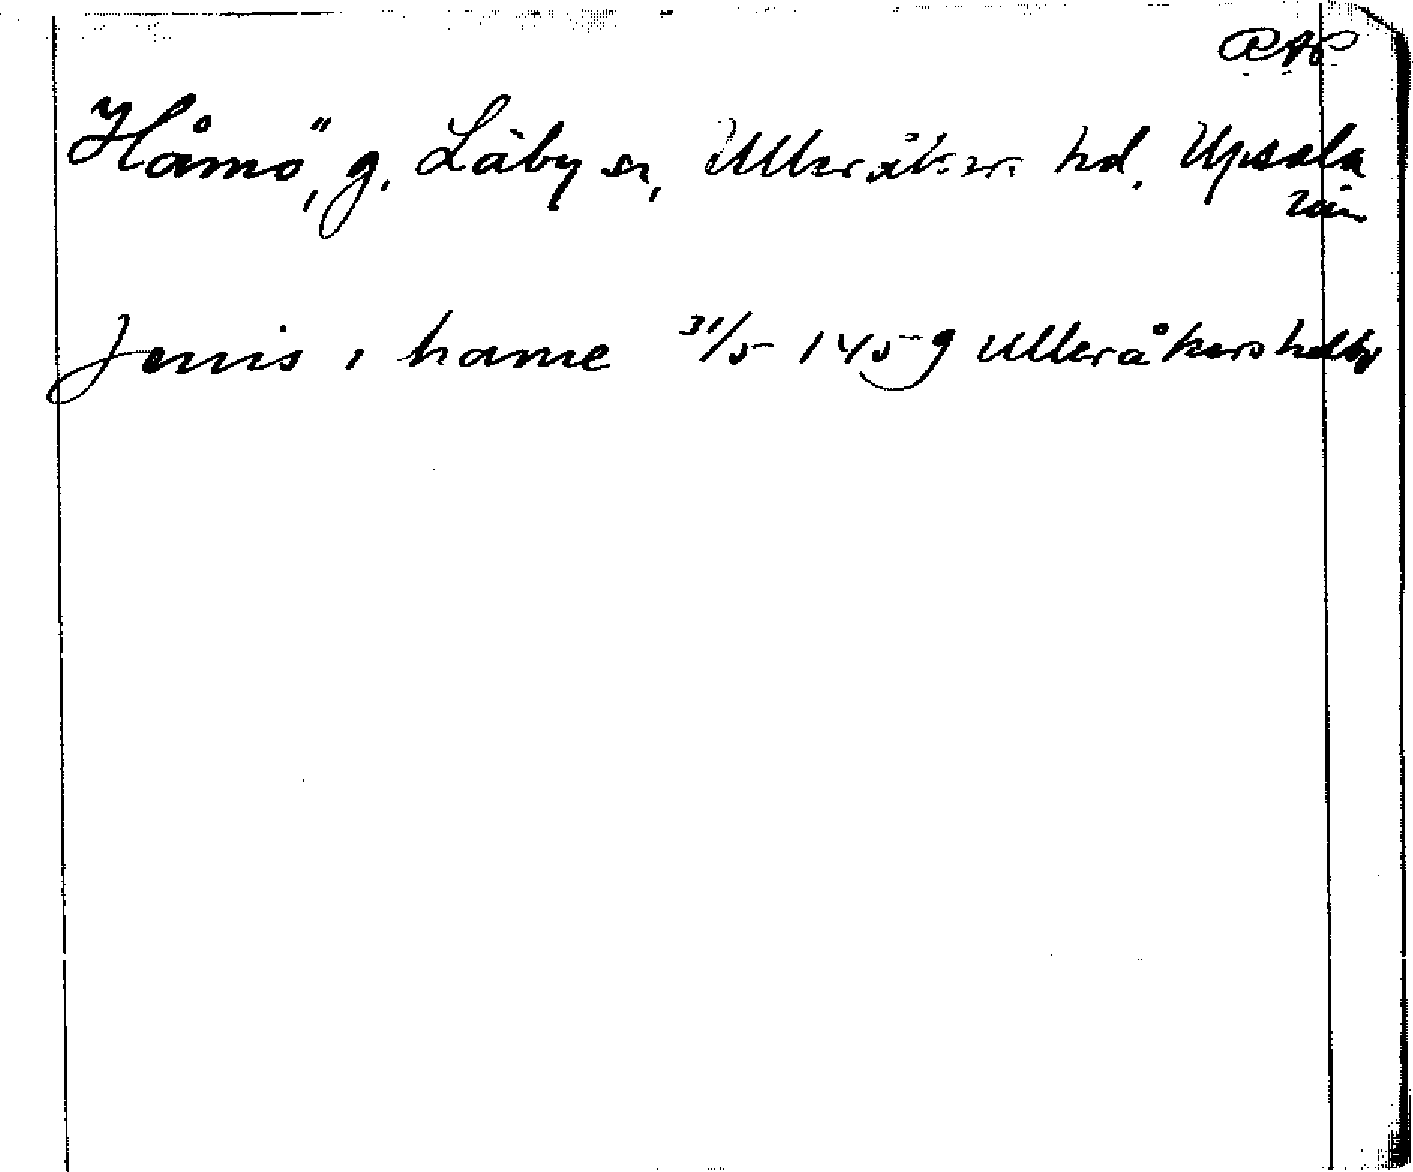 RAP
Håmö, g. Läby sn, Ulleråkers hd. Upsala
län
Jenis i hame 31/5 1459 Ulleråkers hdbr